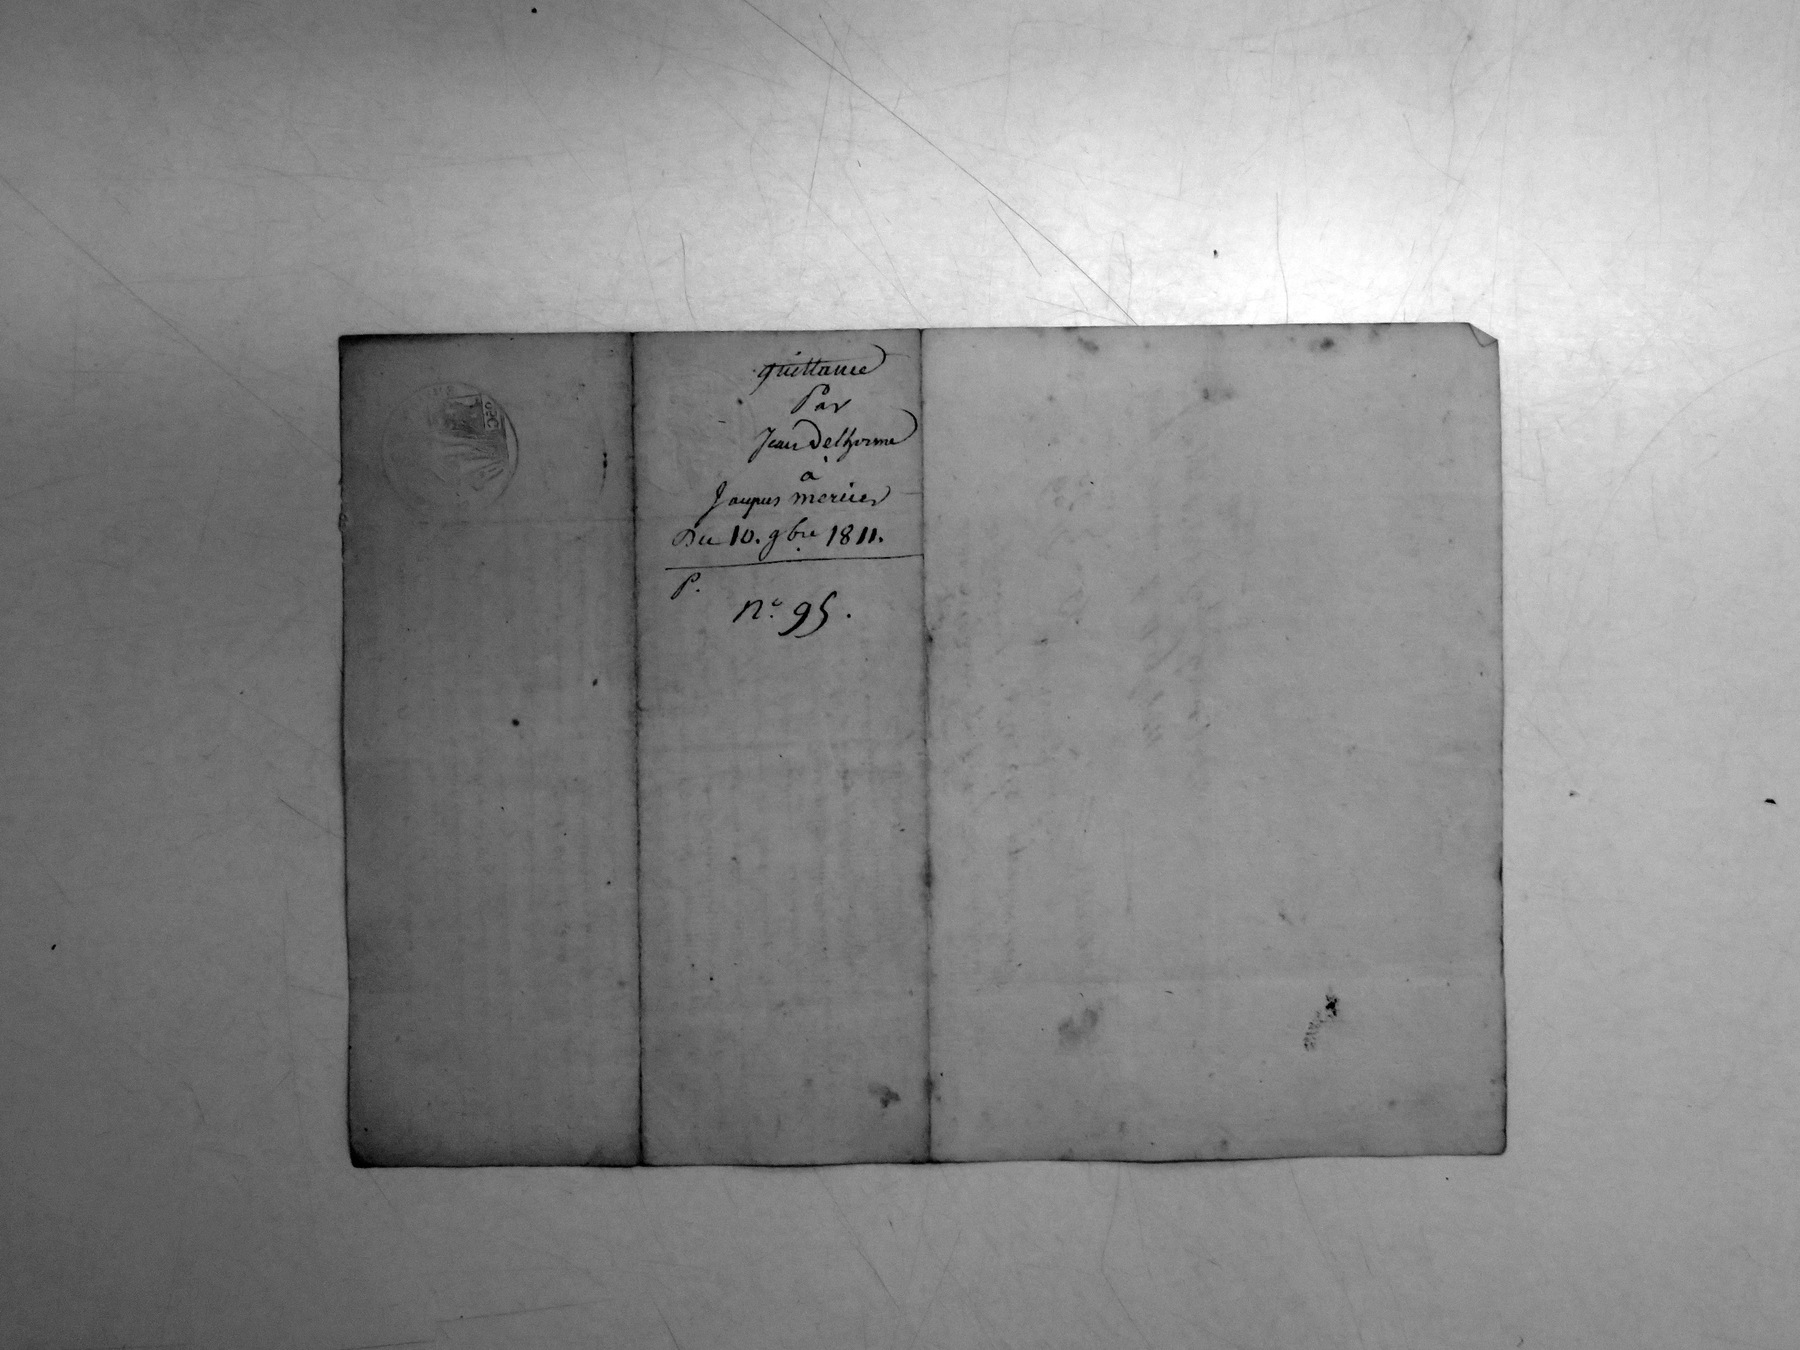 quittance
Par
Jean Delhorme
à
Jacques mercier
Du 10. 9bre 1811.
P.
n° 95.